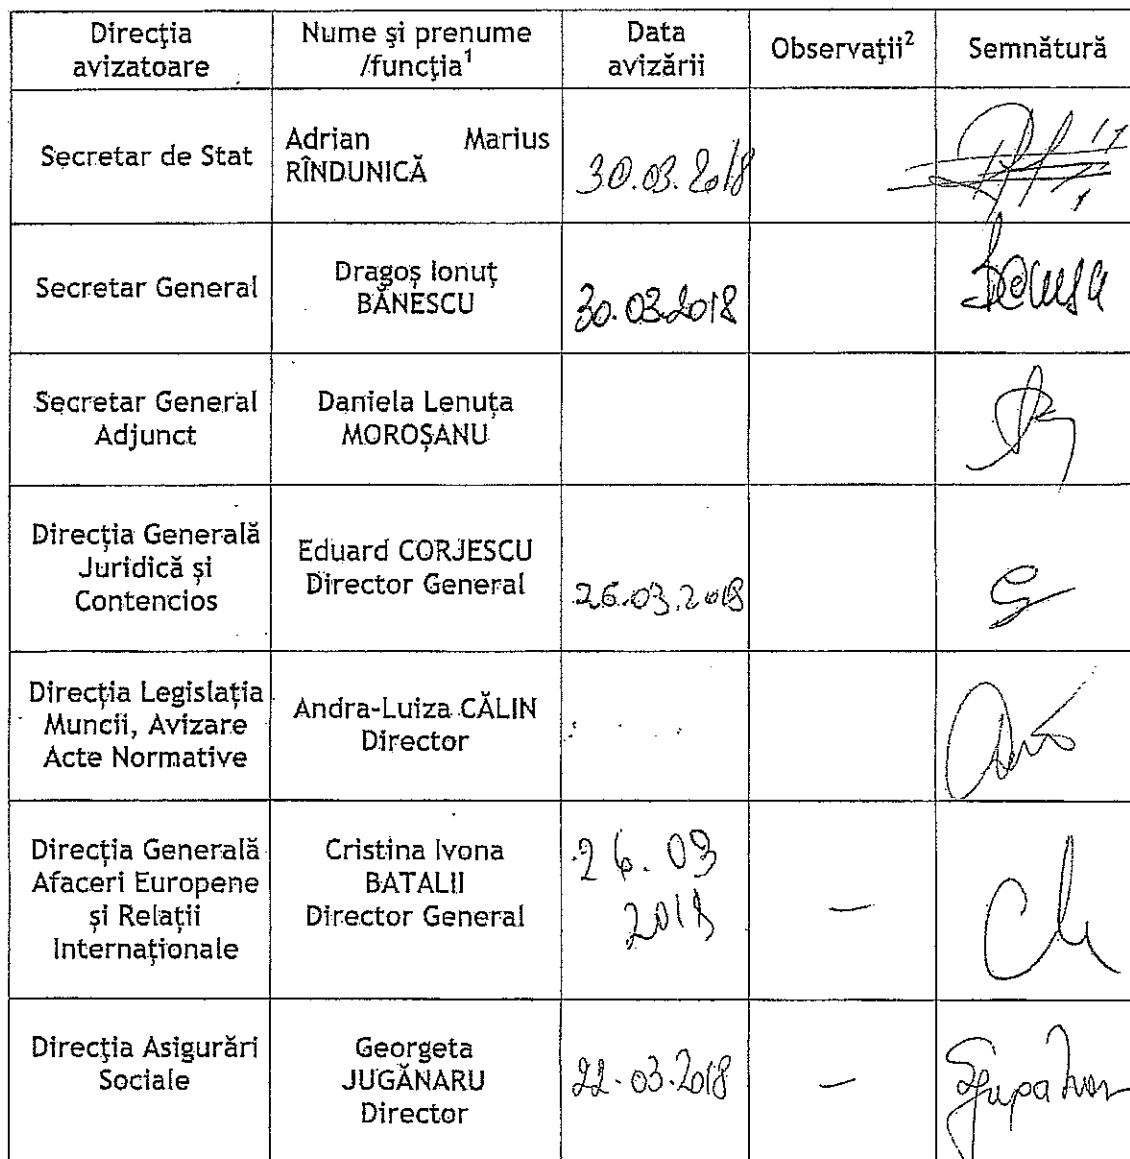 Direcţia avizatoare
Nume şi prenume /funcţia¹
Data avizării
Observaţii²
Semnătură
Secretar de Stat
Adrian Marius
RÎNDUNICĂ
30.03.2018
Secretar General
Dragoș Ionuț
BĂNESCU
30.03.2018
Secretar General
Adjunct
Daniela Lenuţa
MOROȘANU
Direcţia Generală
Juridică și
Contencios
Eduard CORJESCU
Director General
26.03.2018
Direcţia Legislaţia
Muncii, Avizare
Acte Normative
Andra-Luiza CĂLIN
Director
Direcţia Generală
Afaceri Europene
și Relaţii
Internaţionale
Cristina Ivona
BATALII
Director General
26.03
2018
—
Direcţia Asigurări
Sociale
Georgeta
JUGĂNARU
Director
22.03.2018
—